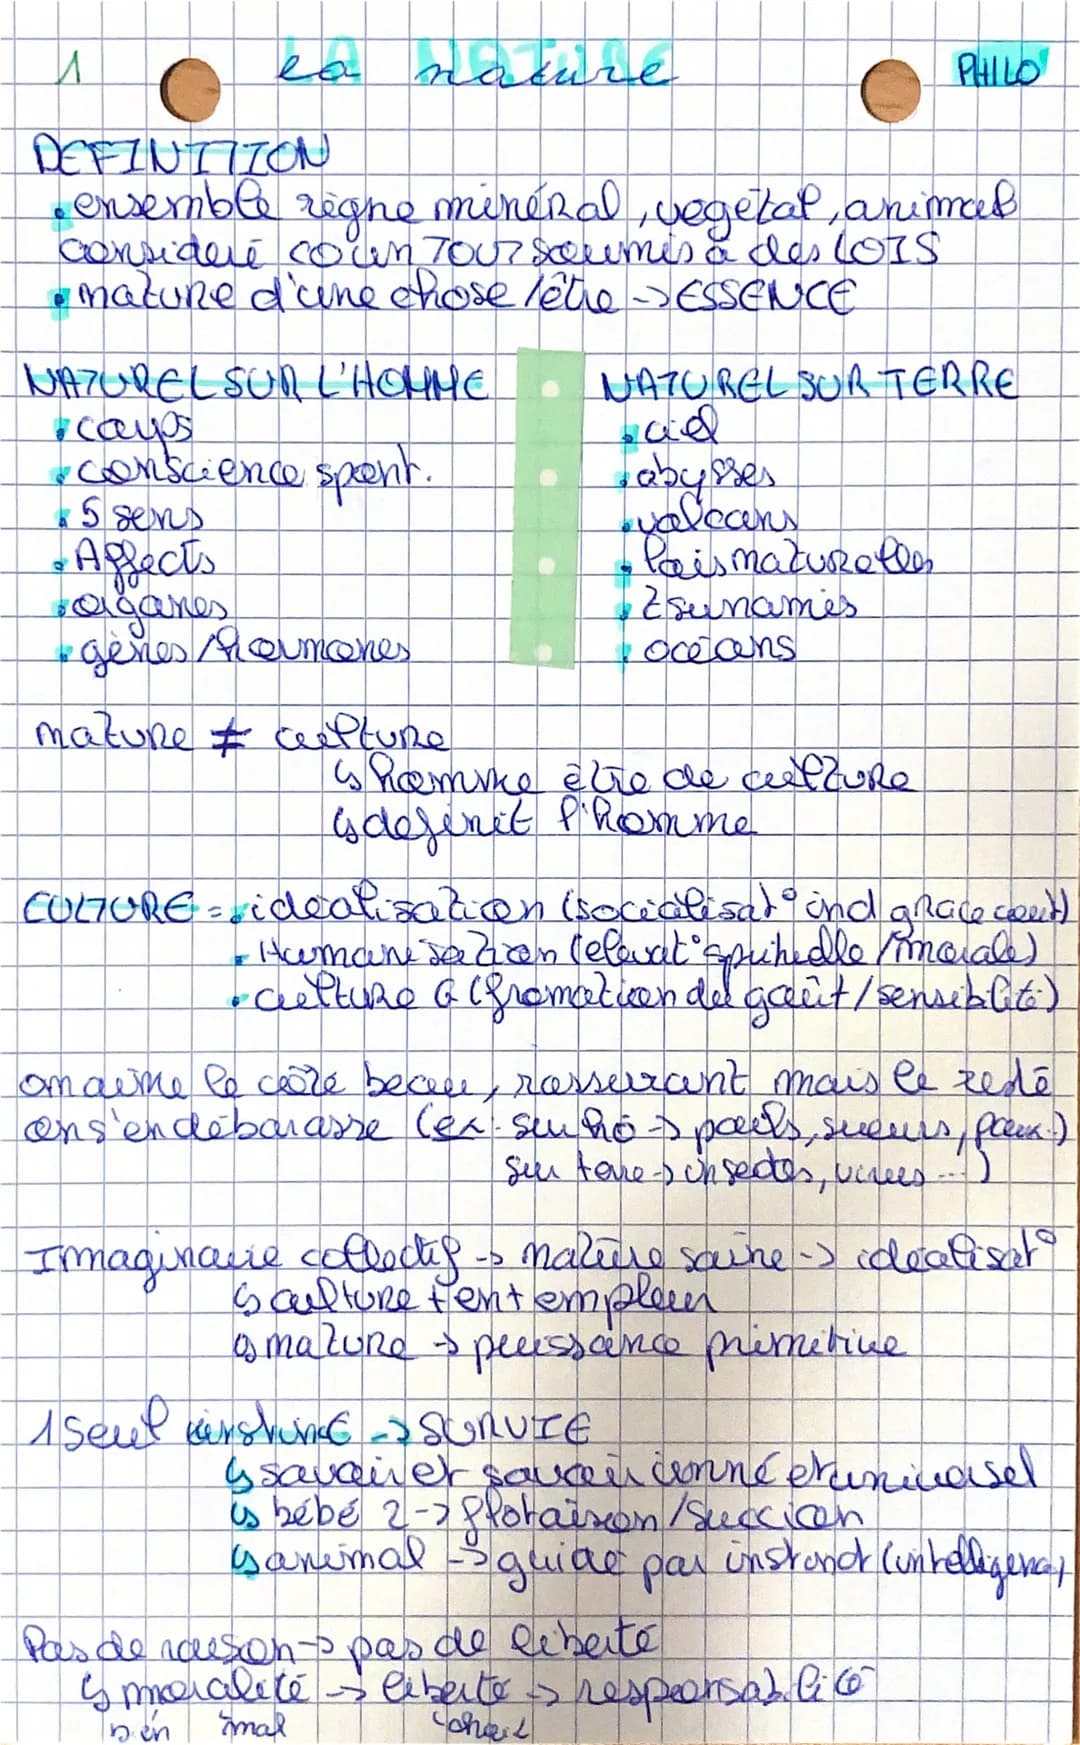 1 la nature PHILO
DEFINITION
• ensemble règne minéral, vegétal, animal
consideré co un TOUT soumis à des LOIS
• nature d'une chose / être -> ESSENCE
NATUREL SUR L'HOMME
• corps
• conscience spont.
• 5 sens
• Affects
• organes
• gènes / hormones
NATUREL SUR TERRE
• ciel
• abysses
• volcans
• lois naturelles
• tsunamis
• océans
nature ≠ culture
↳ homme être de culture
↳ definit l'homme
CULTURE = • idéalisation (socialisat° ind grace cout)
• Humanisation (elevat° spirituelle / morale)
• culture G (fromation du goût / sensiblité)
on aime le côté beau, rassurant mais le reste
on s'en débarasse (ex: sur ho -> poils, sueurs, poux..)
sur terre -> insectes, virus ...)
Immaginaire collectif -> nature saine -> idéalisat°
↳ culture + en + empleur
↳ nature -> puissance primitive
1 seul instinct -> SURVIE
↳ savoir et savoir inné et universel
↳ bébé 2 -> flotaison / succion
↳ animal -> guidé par instinct (intelligence)
Pas de raison -> pas de liberté
↳ moralité -> liberté -> responsabilité
bien mal choix